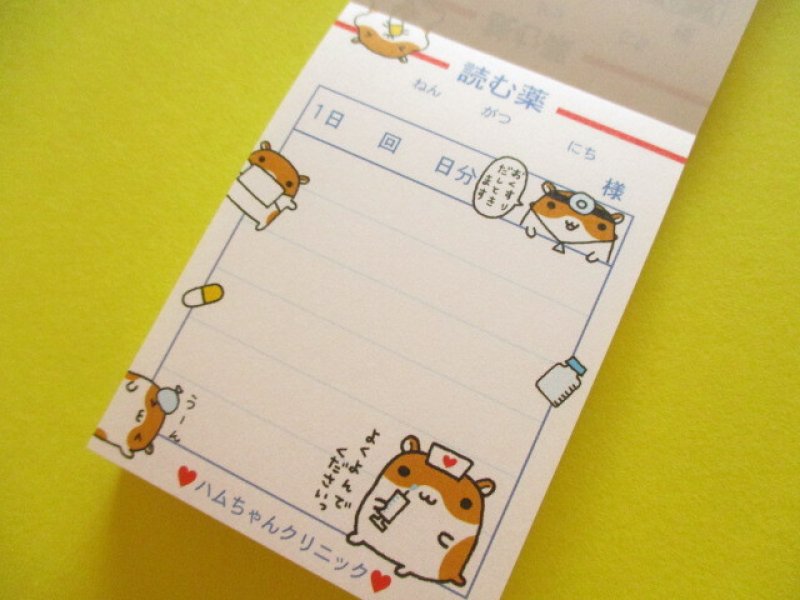 読む薬
ねん がつ にち
1日 回 日分 様
おくすり
だしてき
ます
うーん
よくよんで
くださいっ
ハムちゃんクリニック